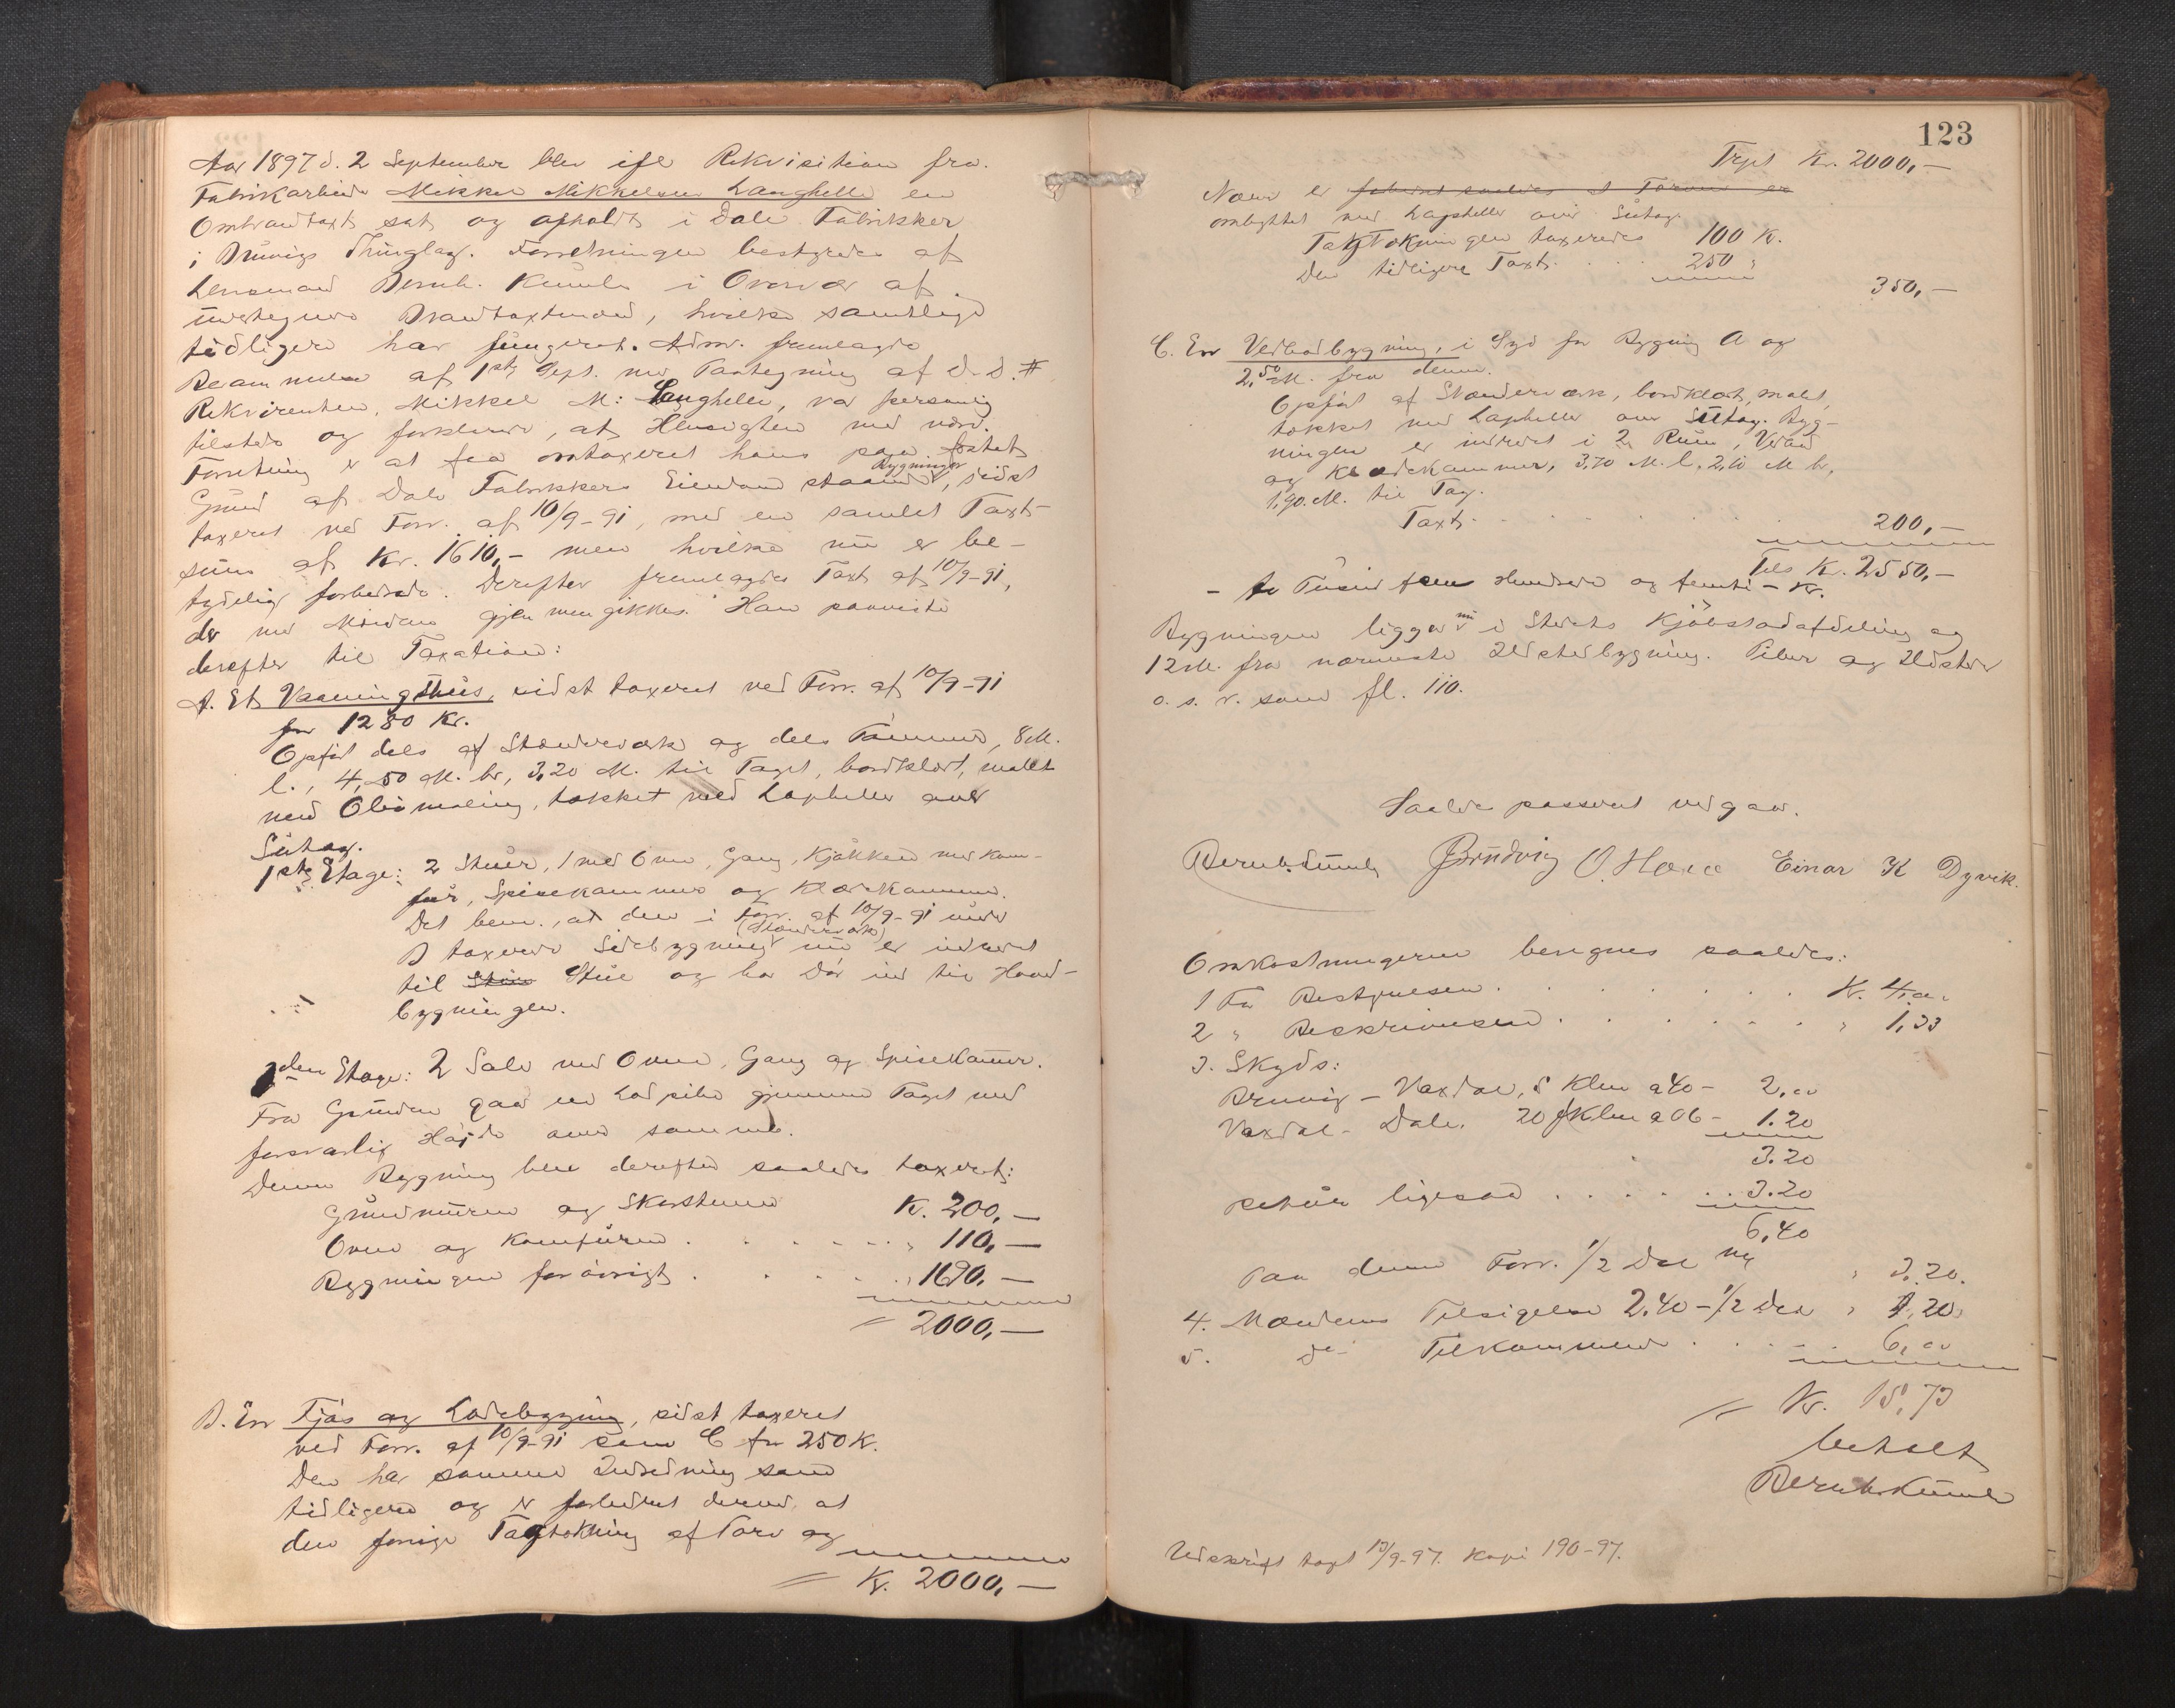 Aar 1897 d. 2 September blev ifl Rekvisition fra
Fabrikarbeider Mikkel Mikkelsen Langhelle en
Ombrandtaxt sat og afholdt i Dale Fabrikker
i Bruvigs Thinglag. Forretningen bestyredes af
Lensmand Bernh. Kunde i Overvær af
undertegnede Brandtaxtmænd, hvilke samtlige
tidligere har fungeret. Adm. fremlagde
Berammelse af 1ste Sept. med Paategning af d. D. #
Rekvirenten, Mikkel M: Langhelle, var personlig
tilstede og forklarede, at Hensigten med nærv.
Forretning er at faa omtaxeret hans paa fæstet
Grund af Dale Fabrikkers Eiendom staaende Bygninger, sidst
taxeret ved Forr. af 10/9-91, med en samlet Taxt-
sum af Kr. 1610,- men hvilke nu er be-
tydelig forbedrede. Derefter fremlagdes Taxt af 10/9-91,
der med Mændene gjennemgikkes. Han paaviste
derefter til Taxation:
A. Et Vaaningshus, sidst taxeret ved Forr. af 10/9-91
for 1280 Kr.
Opført dels af Stenderværk og dels Tømmer, 8 M.
l., 4,50 M. br, 3,20 M. til Taget, bordklædt, malet
med Oliemaling, tækket med Lapheller over
Sutag.
1ste Etage: 2 Stuer, 1 med Ovn, Gang, Kjøkken med Kom-
fur, Spisekammer og Klædekammer.
Det bem., at den i Forr. af 10/9-91 under
B taxerede Sidebygning (Stenderværk) nu er indredet
til Stue Stue og har Dør ind til Hoved-
bygningen.
2den Etage: 2 Sale med Ovne, Gang og Spisekammer.
Fra Grunden gaar en Lodpibe gjennem Taget med
forsvarlig Høide over samme.
Denne Bygning blev derefter saaledes taxeret:
Grundmuren og Skorstenen Kr. 200,-
Ovne og Komfuren . . . . . " 110,-
Bygningen forøvrigt . . . . . " 1690,-
= 2000,-
B. En Fjøs og Ladebygning, sidst taxeret
ved Forr. af 10/9-91 som C for 250 K.
Den har samme Indredning som
tidligere og er forbedret derved, at
den forrige Tagtækning af Torv og
= Kr. 2000,-
123
Trpt Kr. 2000,-
Næver er forbedret saaledes at Torven er
ombyttet med Lapheller over Sutag.
Tagtækningen taxeredes 100 K.
Den tidligere Taxt . . . 250 "
350,-
C. En Vedbodbygning, i Syd for Bygning A og
2,50 M. fra denne.
Opført af Stenderværk, bordklædt, malet,
tækket med Lapheller over Sutag. Byg-
ningen er indredet i 2 Rum, Vedbod
og Klædekammer, 3,70 M. l. 2,10 M br,
1,90 M. til Tag.
Taxt . . . . . . 200,-
Tils Kr. 2550,-
- to Tusind fem Hundrede og femti - Kr.
Bygningen ligger nu i Stedets Kjøbstadafdeling og
12 M. fra nærmeste Ildstedbygning. Piber og Ildsteder
o. s. v. som fl. 110.
Saaledes passeret vedgaar.
Bernh. Kunde Brudvig O. Hesce Einar K Dyvik.
Omkostningerne beregnes saaledes:
1 For Bestyrelsen . . . . . . . Kr. 4,00
2 " Beskrivelsen . . . . . . " 1,33
3. Skyds:
Bruvig - Vaxdal, 5 Klm a 40 - 2,00
Vaxdal - Dale, 20 Klm a 06 - 1.20
3.20
Retur ligesaa . . . . . . . 3.20
6,40
Paa denne Forr. 1/2 Del " 3.20.
4. Mændenes Tilsigelse 2.40 - 1/2 Del " 1,20
5. do Tilkommende . . . . 6,00
= Kr. 15,73
betalt
Bernh. Kunde
Udskrift tagt 13/9-97. Kopi 190-97.